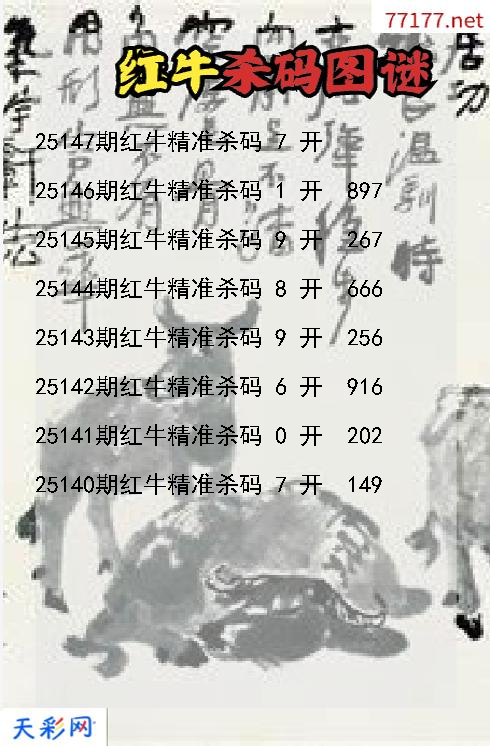 77177.net
红牛杀码图谜
25147期红牛精准杀码 7 开
25146期红牛精准杀码 1 开 897
25145期红牛精准杀码 9 开 267
25144期红牛精准杀码 8 开 666
25143期红牛精准杀码 9 开 256
25142期红牛精准杀码 6 开 916
25141期红牛精准杀码 0 开 202
25140期红牛精准杀码 7 开 149
天彩网